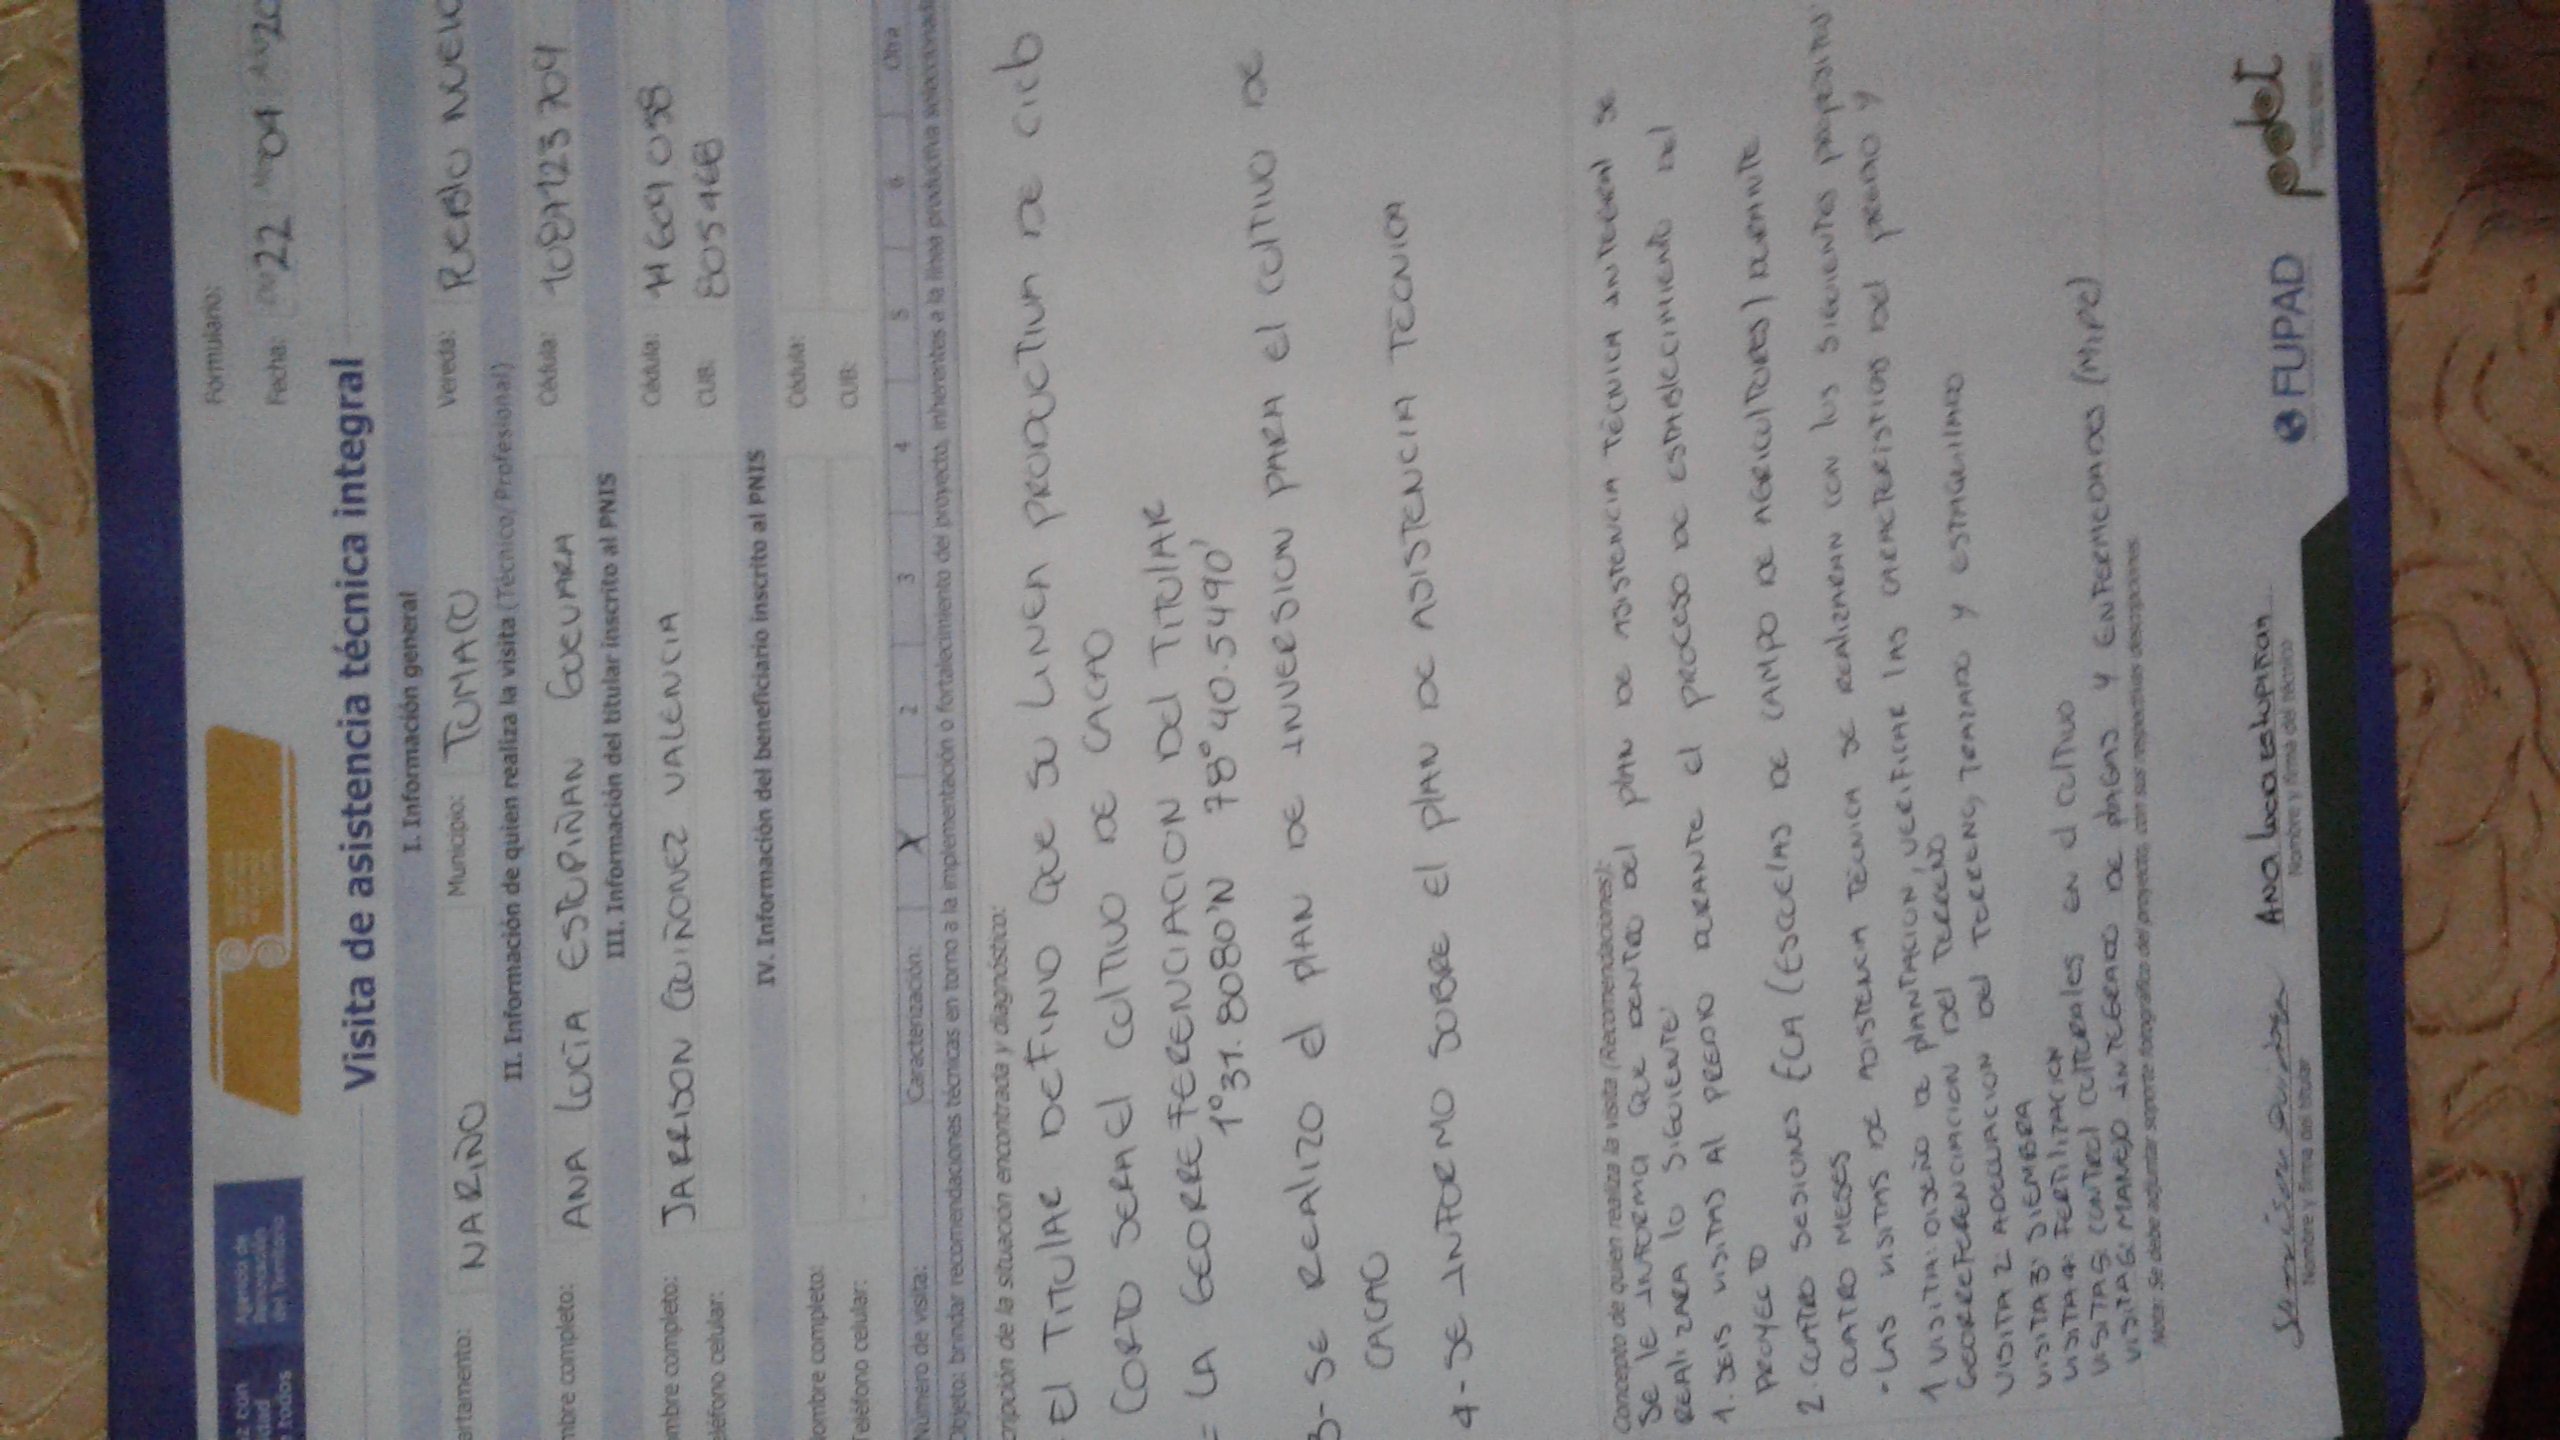 Agencia de
Renovación
del Territorio
Formulario:
Fecha: 22 04 20
Visita de asistencia técnica integral
I. Información general
artamento: NARIÑO Municipio: TUMACO Vereda: PUEBLO NUEVO
II. Información de quien realiza la visita (Técnico/Profesional)
mbre completo: ANA LUCÍA ESTUPIÑAN GUEVARA Cédula: 1087123704
III. Información del titular inscrito al PNIS
mbre completo: JARRISON QUIÑONEZ VALENCIA Cédula: 14609058
eléfono celular: CUB: 805468
IV. Información del beneficiario inscrito al PNIS
Nombre completo: Cédula:
Teléfono celular: CUB:
Número de visita: Caracterización: X 2 3 4 5 6 Otra
Objeto: brindar recomendaciones técnicas en torno a la implementación o fortalecimiento del proyecto, inherentes a la línea productiva seleccionada
cripción de la situación encontrada y diagnóstico:
El TITULAR DEFINO QUE SU LINEA PRODUCTIVA DE CICLO
CORTO SERA El CULTIVO DE CACAO
= LA GEORREFERENCIACION DEl TITULAR
1°31.8080'N 78°40.5490'
3- SE REALIZO El PLAN DE INVERSION PARA El CULTIVO DE
CACAO
4- SE INFORMO SOBRE El PLAN DE ASISTENCIA TECNICA
Concepto de quien realiza la visita (Recomendaciones):
SE le INFORMA QUE DENTRO DEl PLAN DE ASISTENCIA TÉCNICA INTEGRAl SE
REALIZARA lo SIGUIENTE:
1. SEIS VISITAS Al PREDIO DURANTE El PROCESO DE ESTABLECIMIENTO DEl
PROYECTO
2. CUATRO SESIONES ECA (ESCUELAS DE CAMPO DE AGRICULTORES) DURANTE
CUATRO MESES
- LAS VISITAS DE ASISTENCIA TECNICA SE REALIZARAN CON LOS SIGUIENTES PROPOSITOS
1 VISITA: DISEÑO DE PLANTACION, VERIFICAR LAS CARACTERISTICAS DEl PREDIO Y
GEORREFERENCIACION DEl TERRENO
VISITA 2: ADECUACION DEl TERRENO, TRAZADO Y ESTAQUILLADO
VISITA 3: SIEMBRA
VISITA 4: FERTILIZACION
VISITA 5: CONTROl CULTURALES EN El CULTIVO
VISITA 6: MANEJO INTEGRADO DE PLAGAS Y ENFERMEDADES (MIPE)
Nota: Se debe adjuntar soporte fotográfico del proyecto, con sus respectivas descripciones.
Ana Lucia Estupiñan
Nombre y firma del titular Nombre y firma del técnico
FUPAD pdet